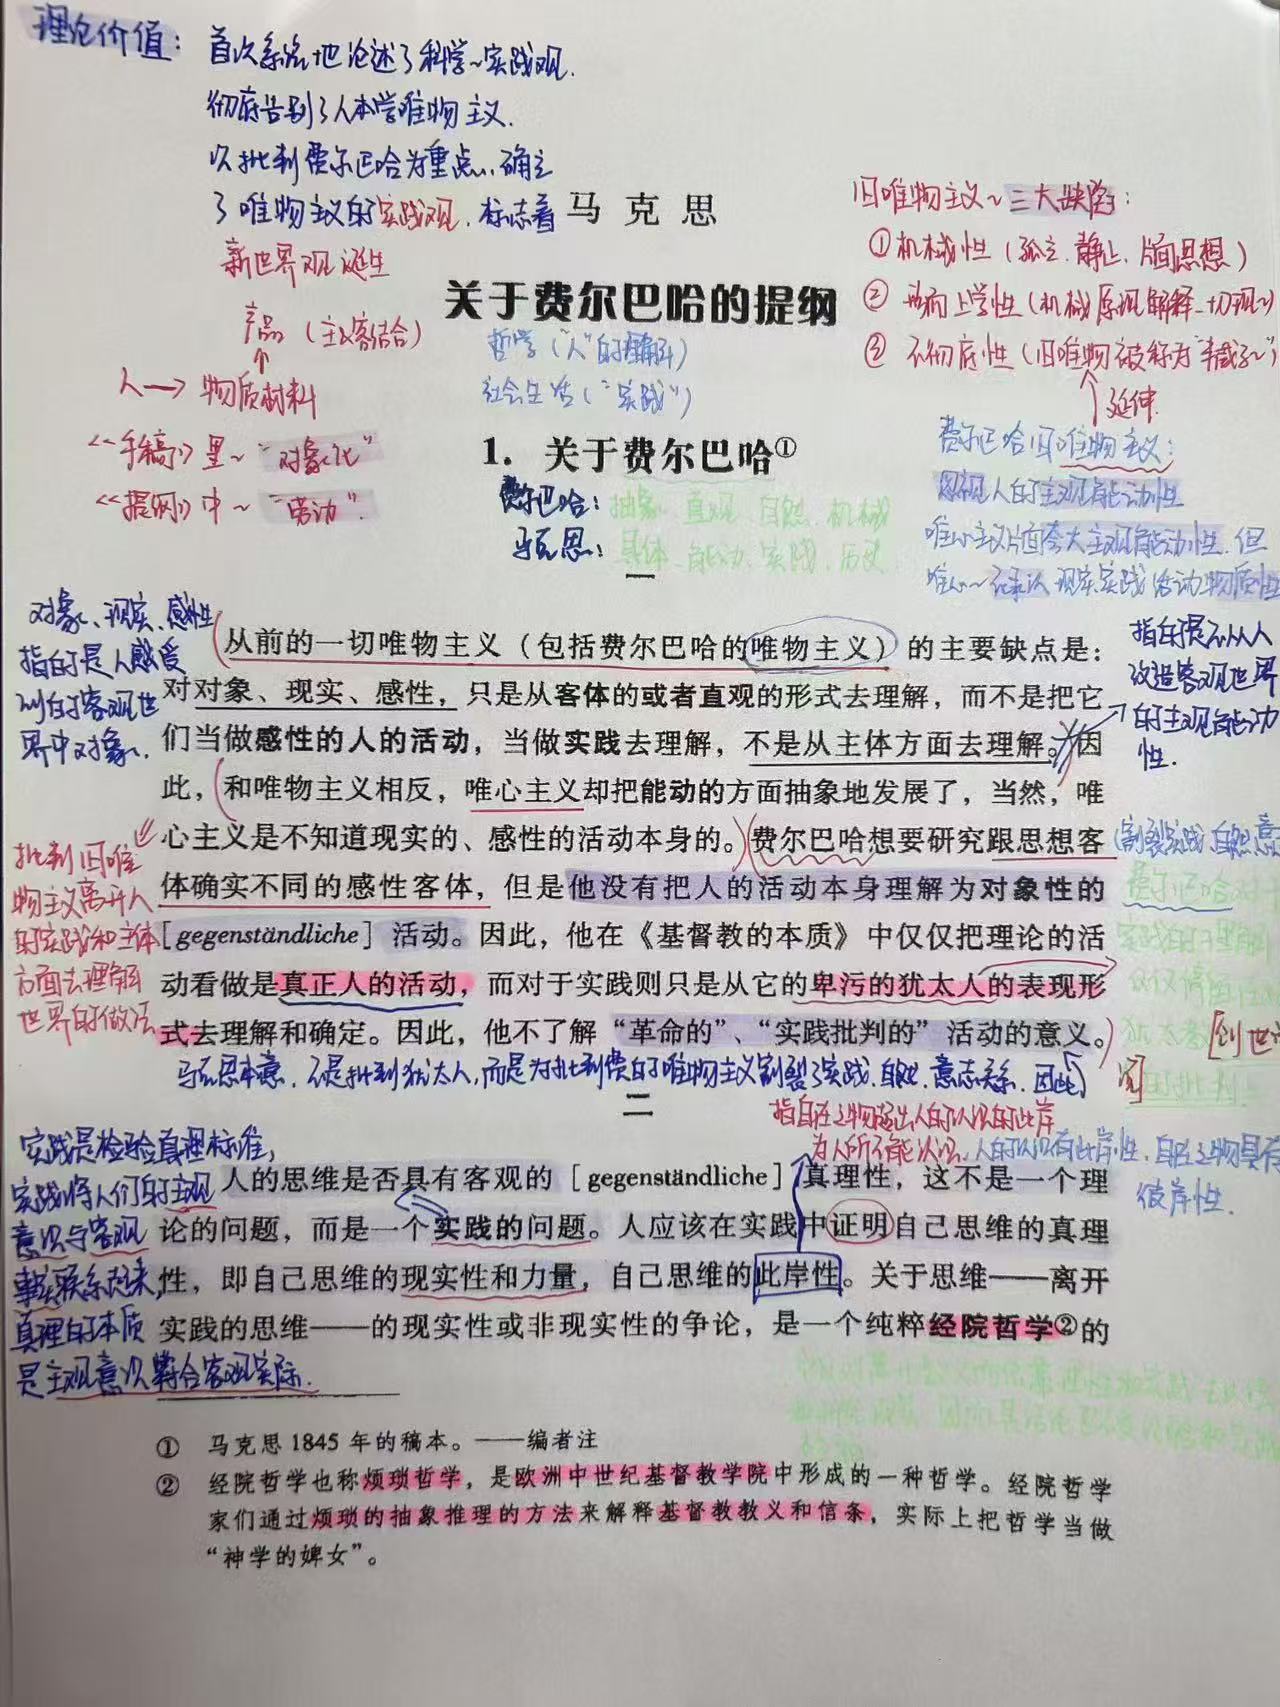 理论价值：首次系统地论述了科学~实践观.
彻底告别了人本学唯物主义.
以批判费尔巴哈为重点，确立
了唯物主义的实践观，标志着
新世界观诞生
马克思
关于费尔巴哈的提纲
旧唯物主义~三大缺陷：
①机械性（孤立、静止、片面思想）
②形而上学性（机械原理解释一切现~）
③不彻底性（旧唯物被称为“半截子~”）
延伸
产品（主客结合）
人→物质材料
《手稿》里~“对象化”
《提纲》中~“劳动”.
哲学（“人”的理解）
社会生活（“实践”）
1. 关于费尔巴哈①
费尔巴哈：抽象、直观、自然、机械
马克思：具体、能动、实践、历史
费尔巴哈旧唯物主义：
忽视人的主观能动性
唯心主义片面夸大主观能动性，但
唯心~否认现实实践活动物质性
一
对象、现实、感性
指的是人感受
到的客观世
界中对象.
从前的一切唯物主义（包括费尔巴哈的唯物主义）的主要缺点是：
对对象、现实、感性，只是从客体的或者直观的形式去理解，而不是把它
们当做感性的人的活动，当做实践去理解，不是从主体方面去理解。因
此，和唯物主义相反，唯心主义却把能动的方面抽象地发展了，当然，唯
心主义是不知道现实的、感性的活动本身的。费尔巴哈想要研究跟思想客
体确实不同的感性客体，但是他没有把人的活动本身理解为对象性的
[gegenständliche] 活动。因此，他在《基督教的本质》中仅仅把理论的活
动看做是真正人的活动，而对于实践则只是从它的卑污的犹太人的表现形
式去理解和确定。因此，他不了解“革命的”、“实践批判的”活动的意义。
指的是不从人
改造客观世界
的主观能动
性.
批判旧唯
物主义离开人
的实践和主体
方面去理解
世界的做法
（割裂实践、自然、意志
费尔巴哈对于
实践的理解
仅仅停留在
犹太教
的批判.
马克思本意，不是批判犹太人，而是为批判费的唯物主义割裂了实践、自然、意志关系，因此
二
指自在之物超出人的认识的此岸
为人所不能认识，人的认识有此岸性，自在之物具有
彼岸性.
实践是检验真理标准，
实践将人们的主观
意识与客观
事实联系起来，
真理的本质
是主观意识符合客观实际.
人的思维是否具有客观的 [gegenständliche] 真理性，这不是一个理
论的问题，而是一个实践的问题。人应该在实践中证明自己思维的真理
性，即自己思维的现实性和力量，自己思维的此岸性。关于思维——离开
实践的思维——的现实性或非现实性的争论，是一个纯粹经院哲学②的
① 马克思 1845 年的稿本。——编者注
② 经院哲学也称烦琐哲学，是欧洲中世纪基督教学院中形成的一种哲学。经院哲学
家们通过烦琐的抽象推理的方法来解释基督教教义和信条，实际上把哲学当做
“神学的婢女”。